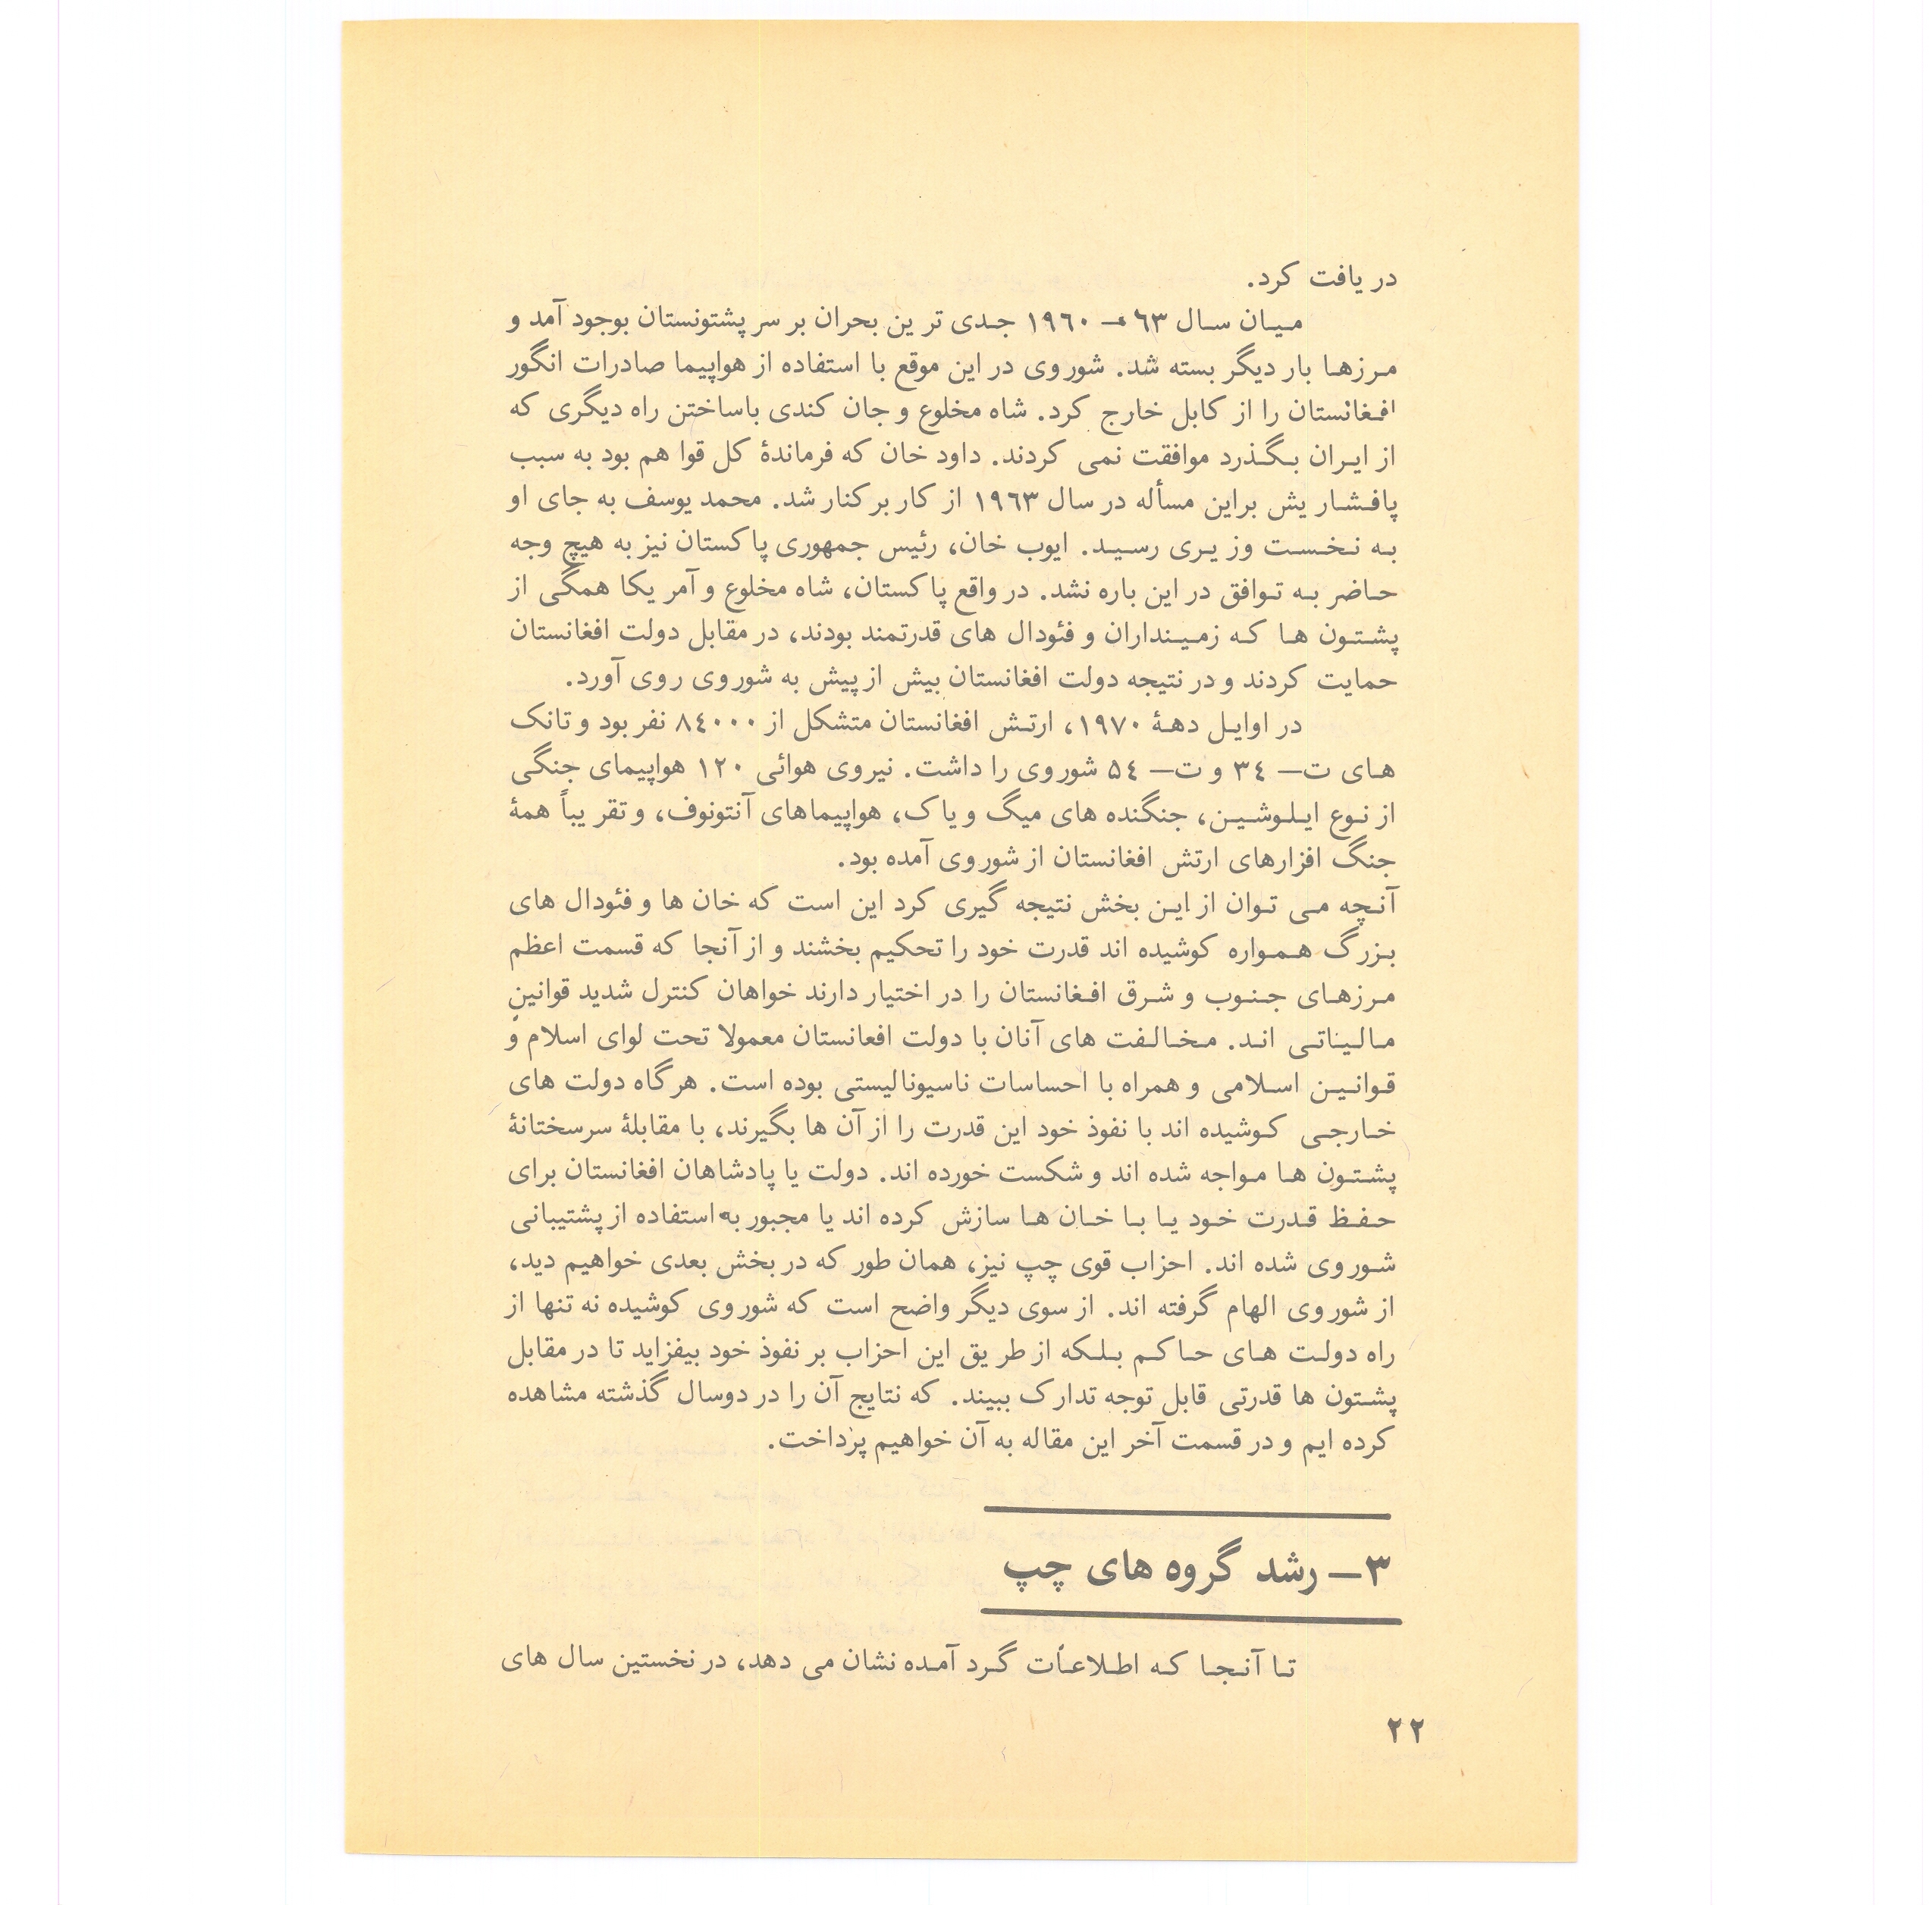 دریافت کرد.
میان سال ۶۳ـ ۱۹۶۰ جدی ترین بحران بر سر پشتونستان بوجود آمد و
مرزها بار دیگر بسته شد. شوروی در این موقع با استفاده از هواپیما صادرات انگور
افغانستان را از کابل خارج کرد. شاه مخلوع و جان کندی باساختن راه دیگری که
از ایران بگذرد موافقت نمی کردند. داود خان که فرماندهٔ کل قوا هم بود به سبب
پافشاریش براین مسأله در سال ۱۹۶۳ از کار برکنار شد. محمد یوسف به جای او
به نخست وزیری رسید. ایوب خان، رئیس جمهوری پاکستان نیز به هیچ وجه
حاضر به توافق در این باره نشد. در واقع پاکستان، شاه مخلوع و آمریکا همگی از
پشتون ها که زمینداران و فئودال های قدرتمند بودند، در مقابل دولت افغانستان
حمایت کردند و در نتیجه دولت افغانستان بیش از پیش به شوروی روی آورد.
در اوایل دههٔ ۱۹۷۰، ارتش افغانستان متشکل از ۸۴۰۰۰ نفر بود و تانک
های ت— ۳۴ و ت— ۵۴ شوروی را داشت. نیروی هوائی ۱۲۰ هواپیمای جنگی
از نوع ایلوشین، جنگنده های میگ و یاک، هواپیماهای آنتونوف، و تقریباً همهٔ
جنگ افزارهای ارتش افغانستان از شوروی آمده بود.
آنچه می توان از این بخش نتیجه گیری کرد این است که خان ها و فئودال های
بزرگ همواره کوشیده اند قدرت خود را تحکیم بخشند و از آنجا که قسمت اعظم
مرزهای جنوب و شرق افغانستان را در اختیار دارند خواهان کنترل شدید قوانین
مالیناتی اند. مخالفت های آنان با دولت افعانستان معمولا تحت لوای اسلام و
قوانین اسلامی و همراه با احساسات ناسیونالیستی بوده است. هرگاه دولت های
خارجی کوشیده اند با نفوذ خود این قدرت را از آن ها بگیرند، با مقابلهٔ سرسختانهٔ
پشتون ها مواجه شده اند و شکست خورده اند. دولت یا پادشاهان افغانستان برای
حفظ قدرت خود یا با خان ها سازش کرده اند یا مجبور به استفاده از پشتیبانی
شوروی شده اند. احزاب قوی چپ نیز، همان طور که در بخش بعدی خواهیم دید،
از شوروی الهام گرفته اند. از سوی دیگر واضح است که شوروی کوشیده نه تنها از
راه دولت های حاکم بلکه از طریق این احزاب بر نفوذ خود بیفزاید تا در مقابل
پشتون ها قدرتی قابل توجه تدارک ببیند. که نتایج آن را در دوسال گذشته مشاهده
کرده ایم و در قسمت آخر این مقاله به آن خواهیم پرداخت.
۳— رشد گروه های چپ
تا آنجا که اطلاعات گرد آمده نشان می دهد، در نخستین سال های
۲۲